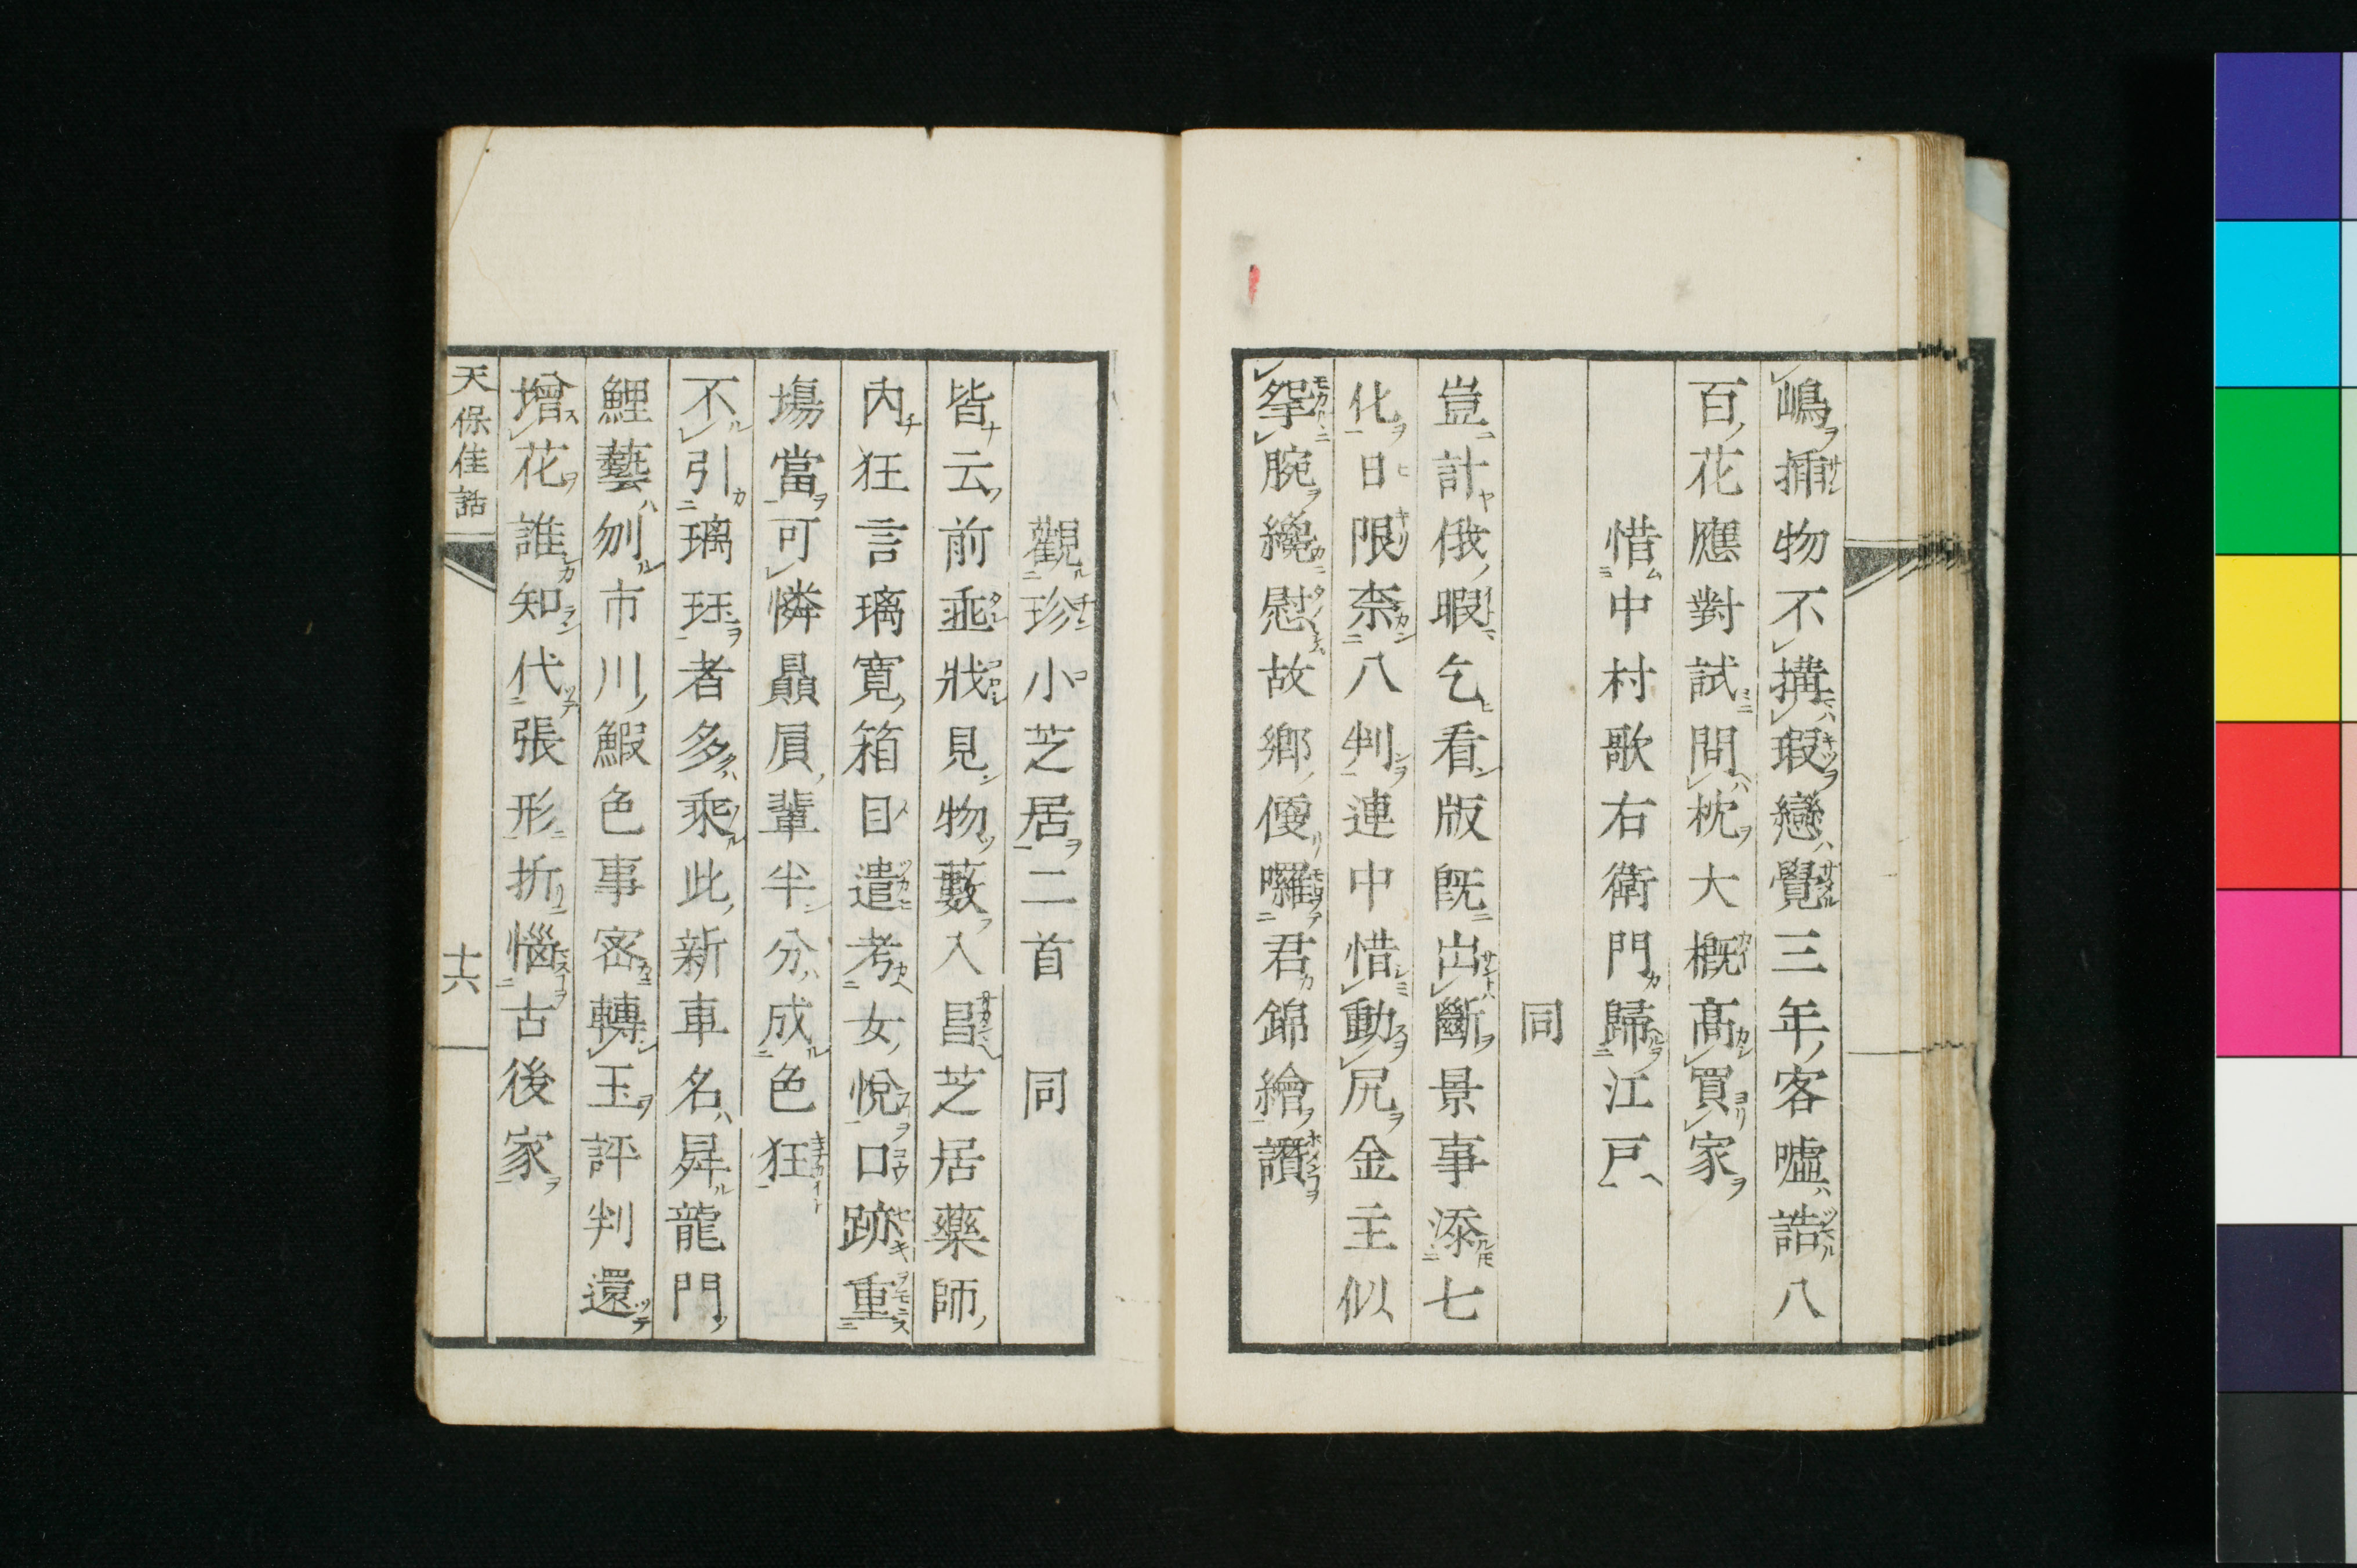 嶋揷物不搆瑕戀覺三年客嘘誥八
百花應對試問枕大概高買家
惜中村歌右衛門歸江戸
同
豈計俄暇乞看版既出斷景事添七
化日限柰八判連中惜動尻金主似
腕纔慰故鄉優囉君錦繪讚
觀珍小芝居二首同
皆云前埀戕見物藪入昌芝居藥師
内狂言璃寛箱目遣考女悅口跡重
塲當可憐贔屓輩半分成色狂
不引璃珏者多乘此新車名昇龍門
鯉藝刎市川鰕色事密轉玉評判還
增花誰知代張形折惱古後家
天保佳話
十六